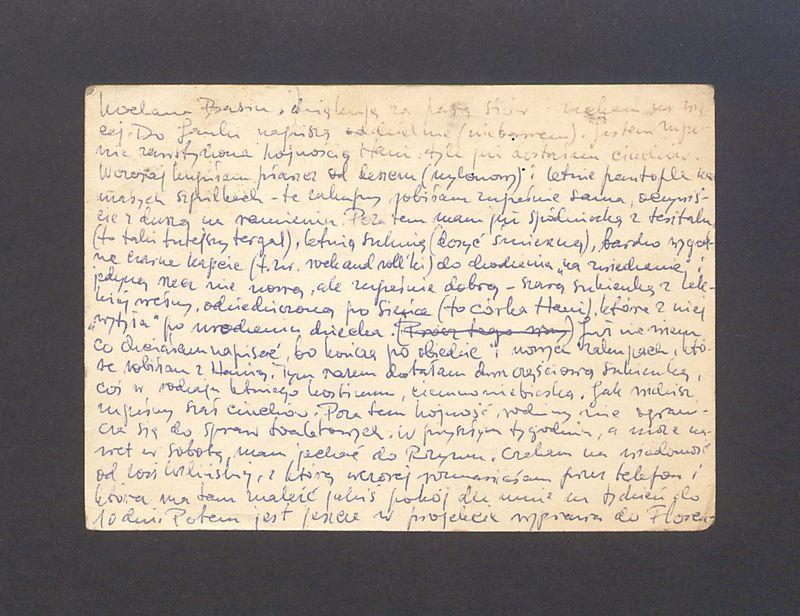 Kochana Basiu, dziękuję za parę słów i czekam na wię-
cej. Do Janki napiszę oddzielnie (niebawem). Jestem zupeł-
nie zawstydzona hojnością Hani: tyle już dostałam ciuchów.
Wczoraj kupiłam płaszcz od deszczu (nylonowy) i letnie pantofle na
małych szpilkach - te zakupy robiłam zupełnie sama, oczywiś-
cie z duszą na ramieniu. Poza tem mam już spódniczkę z teritalu
(to taki tutejszy tergal), letnią suknię (dosyć śmieszną), bardzo wygod-
ne czarne kapcie (t.zw. rock and roll'ki) do chodzenia "na zwiedzanie" i
jedyną rzecz nie nową, ale zupełnie dobrą - szarą sukienkę z lek-
kiej wełny, odziedziczoną po (to córka Hani), która z niej
"wytyła" po urodzeniu dziecka. (Prócz tego mam) Już nie wiem
co chciałam napisać, bo kończę po obiedzie i nowych zakupach, któ-
re robiłam z Hanią. Tym razem dostałam dwuczęściową sukienkę,
coś w rodzaju letniego kostiumu, ciemnoniebieską. Jak widzisz
zupełny szał ciuchów. Poza tem hojność rodziny nie ograni-
cza się do spraw toaletowych. W przyszłym tygodniu, a może na-
wet w sobotę, mam jechać do Rzymu. Czekam na wiadomość
od, z którą wczoraj rozmawiałam przez telefon i
która ma tam znaleźć jakiś pokój dla mnie na tydzień do
10 dni. Potem jest jeszcze w projekcie wyprawa do Floren-